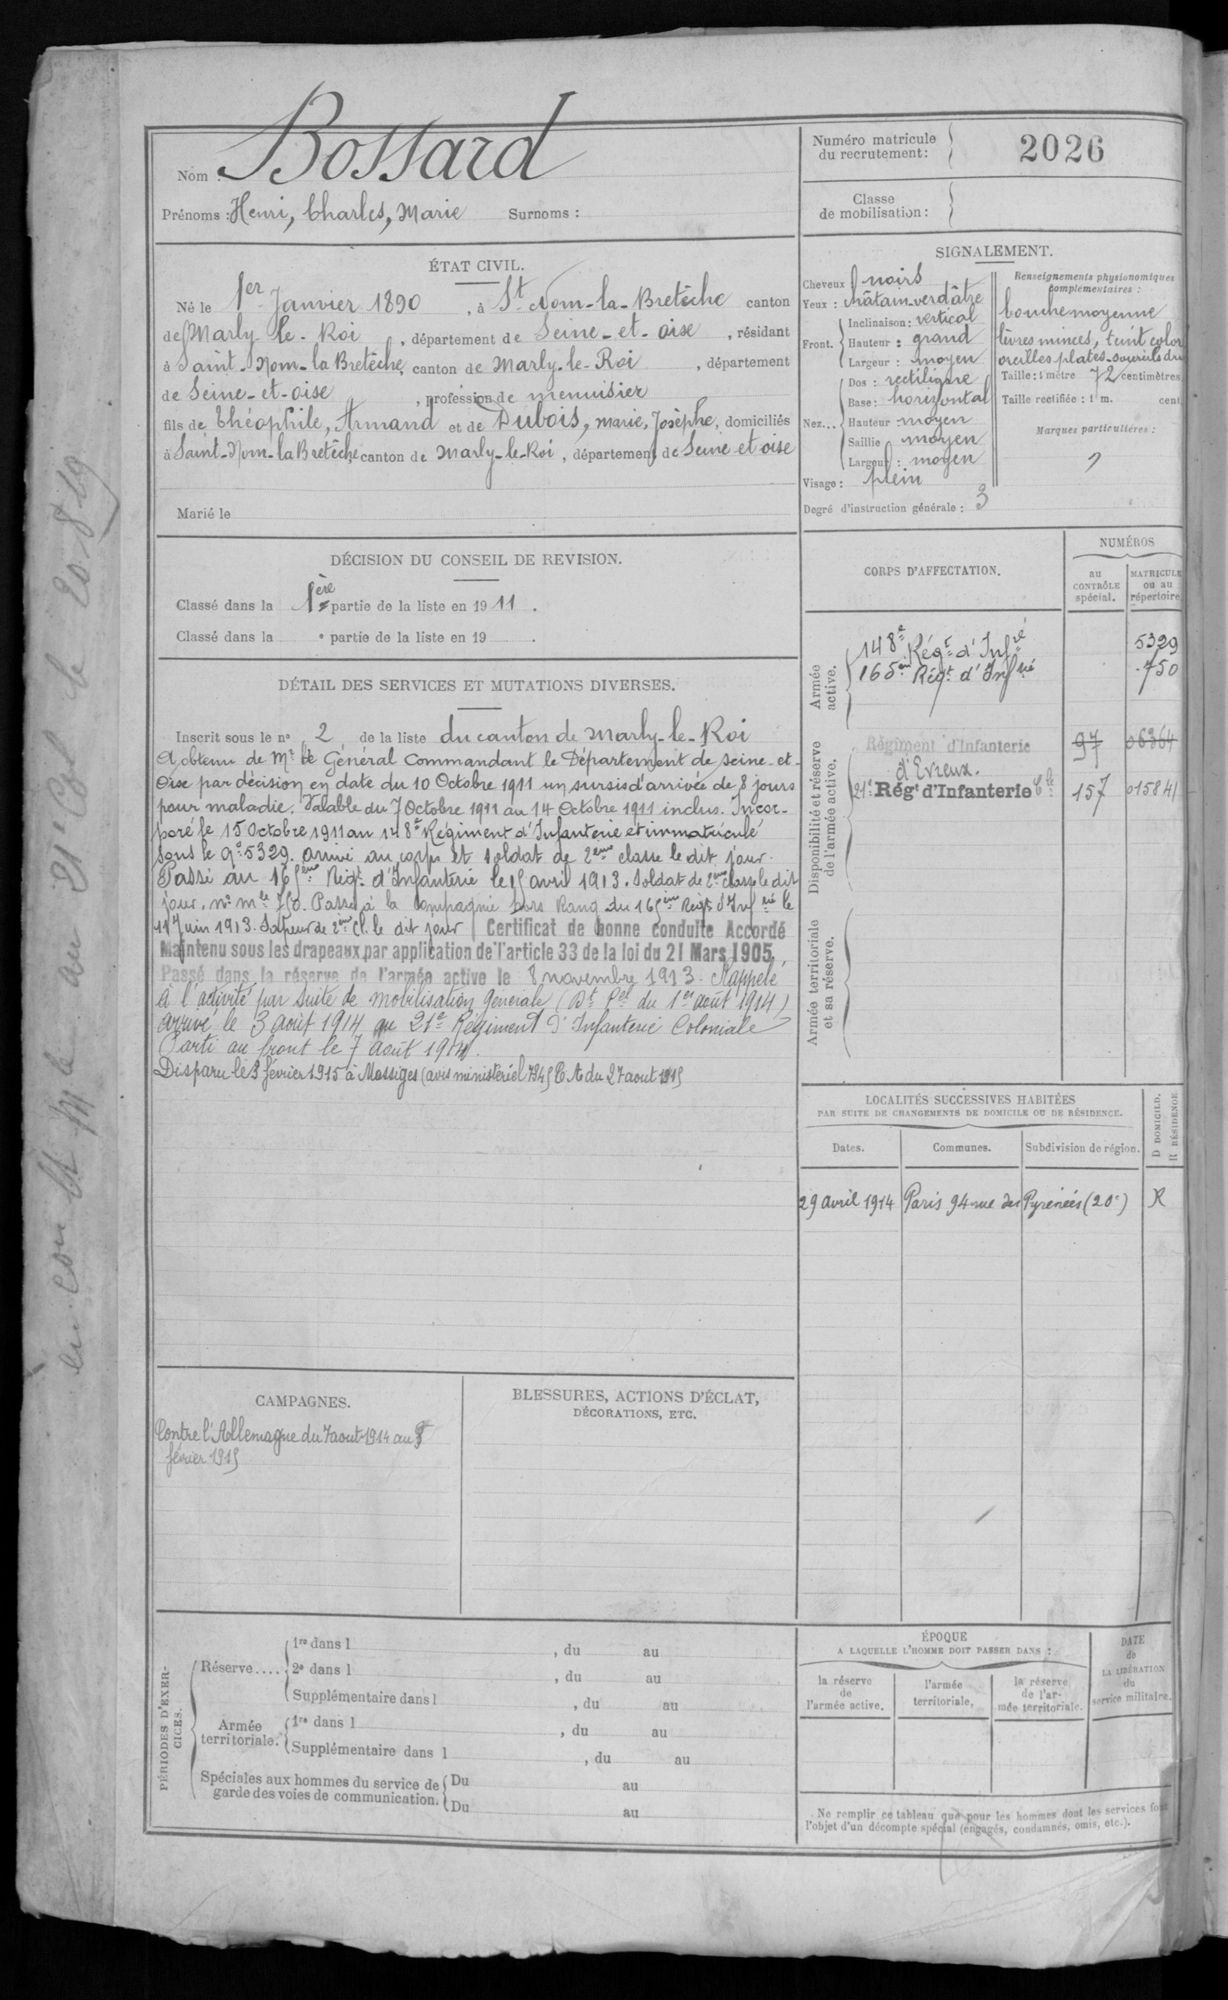 Nom : Bossard
Prénoms : Henri, Charles, Marie Surnoms :
Numéro matricule du recrutement : 2026
Classe de mobilisation :
ÉTAT CIVIL.
Né le 1er Janvier 1890, à St Nom-la-Bretèche canton
de Marly-le-Roi, département de Seine-et-oise, résidant
à Saint-Nom-la Bretèche, canton de Marly-le-Roi, département
de Seine-et-oise, profession de menuisier
fils de théophile, Armand et de Dubois, marie, Josèphe, domiciliés
à Saint-Nom-la Bretèche, canton de Marly-le-Roi, département de Seine et oise
Marié le
SIGNALEMENT.
Cheveux noirs
Yeux : châtain-verdâtre
Front. Inclinaison : vertical
Hauteur : grand
Largeur : moyen
Nez... Dos : rectiligne
Base : horizontal
Hauteur moyen
Saillie moyen
Largeur : moyen
Visage : plein
Degré d'instruction générale : 3
Renseignements physionomiques complémentaires :
bouche moyenne
lèvres minces, teint color
oreilles plates-sourcils dr
Taille : 1 mètre 72 centimètres
Taille rectifiée : 1 m. cent
Marques particulières :
DÉCISION DU CONSEIL DE REVISION.
Classé dans la 1ère partie de la liste en 1911.
Classé dans la e partie de la liste en 19 .
DÉTAIL DES SERVICES ET MUTATIONS DIVERSES.
Inscrit sous le n° 2 de la liste du canton de Marly-le-Roi
A obtenu de Mr le Général Commandant le Département de Seine-et-
Oise par décision en date du 10 Octobre 1911 un sursis d'arrivée de 8 jours
pour maladie. Valable du 7 Octobre 1911 au 14 Octobre 1911 inclus. Incor-
poré le 15 Octobre 1911 au 148e Régiment d'Infanterie et immatriculé
sous le n° 5329. arrivé au corps et soldat de 2ème classe le dit jour.
Passé au 165ème Régt d'Infanterie le 15 avril 1913. Soldat de 2ème classe le dit
jour. No mle 750. Passé à la Compagnie hors Rang du 165ème Régt d'Infrie le
11 Juin 1913. Sapeur de 2ème Cl. le dit jour Certificat de bonne conduite Accordé
Maintenu sous les drapeaux par application de l'article 33 de la loi du 21 Mars 1905.
Passé dans la réserve de l'armée active le 8 novembre 1913. Rappelé
à l'activité par suite de mobilisation générale (Dt Pel du 1er août 1914)
arrivé le 3 août 1914 au 21e Régiment d'Infanterie Coloniale
Parti au front le 7 août 1914.
Disparu le 3 février 1915 à Massiges (avis ministériel 7845 EA du 27 aout 1915
CORPS D'AFFECTATION.
NUMÉROS
au CONTRÔLE spécial.
MATRICULE ou au répertoire
Armée active.
148e Régt d'Infie 5329
165ème Régt d'Infrie 750
Disponibilité et réserve de l'armée active.
Régiment d'Infanterie d'Evreux. 97 06364
21e Régt d'Infanterie Cle 157 015841
Armée territoriale et sa réserve.
LOCALITÉS SUCCESSIVES HABITÉES
PAR SUITE DE CHANGEMENTS DE DOMICILE OU DE RÉSIDENCE.
Dates. Communes. Subdivision de région. D DOMICILE. R RÉSIDENCE
29 avril 1914 Paris 94 rue des Pyrénées (20e) R
CAMPAGNES.
Contre l'Allemagne du 7 aout 1914 au 3
février 1915
BLESSURES, ACTIONS D'ÉCLAT,
DÉCORATIONS, ETC.
PÉRIODES D'EXERCICES.
Réserve.... 1re dans l , du au
2e dans l , du au
Supplémentaire dans l , du au
Armée territoriale. 1re dans l , du au
Supplémentaire dans l , du au
Spéciales aux hommes du service de garde des voies de communication. Du au
Du au
ÉPOQUE
A LAQUELLE L'HOMME DOIT PASSER DANS :
la réserve de l'armée active.
l'armée territoriale.
la réserve de l'armée territoriale.
DATE de LA LIBÉRATION du service militaire.
Ne remplir ce tableau que pour les hommes dont les services font
l'objet d'un décompte spécial (engagés, condamnés, omis, etc.).